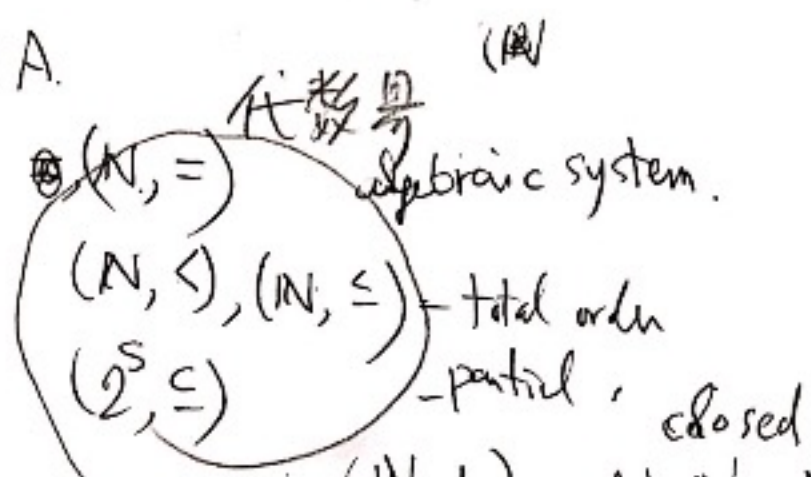 A.
代数
algebraic system.
(N, =)
(N, <), (N, ≤) - total order
(2^S, ⊆) - partial "
closed